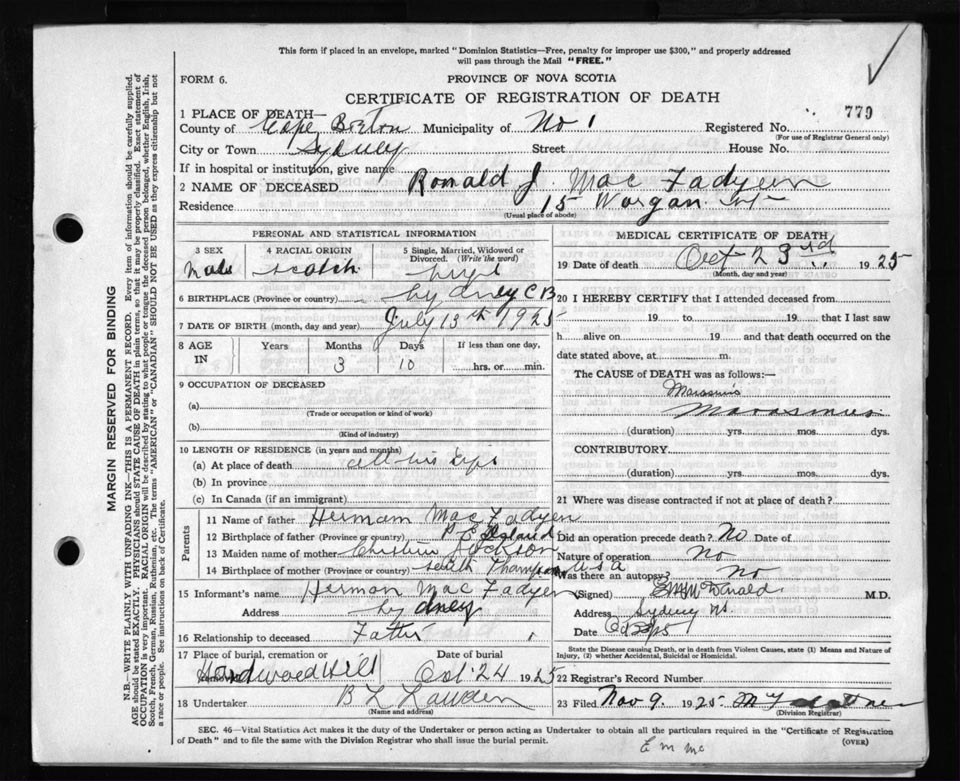 This form if placed in an envelope, marked "Dominion Statistics—Free, penalty for improper use $300," and properly addressed
will pass through the Mail "FREE."
FORM 6.
PROVINCE OF NOVA SCOTIA
CERTIFICATE OF REGISTRATION OF DEATH
779
1 PLACE OF DEATH—
County of Cape Breton Municipality of No 1 Registered No.
(For use of Registrar General only)
City or Town Sydney Street House No.
If in hospital or institution, give name
2 NAME OF DECEASED Ronald J. MacFadyen
Residence 15 Worgan
(Usual place of abode)
PERSONAL AND STATISTICAL INFORMATION
3 SEX 4 RACIAL ORIGIN 5 Single, Married, Widowed or Divorced. (Write the word)
Male Scotch
6 BIRTHPLACE (Province or country) Sydney CB
7 DATE OF BIRTH (month, day and year) July 13th 1925
8 AGE IN Years Months Days If less than one day,
3 10 hrs. or min.
9 OCCUPATION OF DECEASED
(a)
(Trade or occupation or kind of work)
(b)
(Kind of industry)
10 LENGTH OF RESIDENCE (in years and months)
(a) At place of death all his life
(b) In province
(c) In Canada (if an immigrant)
Parents
11 Name of father Hermam MacFadyen
12 Birthplace of father (Province or country) P E Island
13 Maiden name of mother Jackson
14 Birthplace of mother (Province or country) USA
15 Informant's name Herman MacFadyen
Address Sydney
16 Relationship to deceased Father
17 Place of burial, cremation or Date of burial
Hardwood Hill Oct 24 1925
18 Undertaker B L
(Name and address)
MEDICAL CERTIFICATE OF DEATH
19 Date of death Oct 23rd 1925
(Month, day and year)
20 I HEREBY CERTIFY that I attended deceased from
19 to 19 that I last saw
h alive on 19 and that death occurred on the
date stated above, at m.
The CAUSE of DEATH was as follows:—
Marasmus
Marasmus
(duration) yrs. mos. dys.
CONTRIBUTORY
(duration) yrs. mos. dys.
21 Where was disease contracted if not at place of death?
Did an operation precede death? No Date of
Nature of operation No
Was there an autopsy? No
(Signed) McDonald M.D.
Address Sydney NS.
Date
State the Disease causing Death, or in death from Violent Causes, state (1) Means and Nature of
Injury, (2) whether Accidental, Suicidal or Homicidal.
22 Registrar's Record Number
23 Filed Nov 9 1925
(Division Registrar)
SEC. 46—Vital Statistics Act makes it the duty of the Undertaker or person acting as Undertaker to obtain all the particulars required in the "Certificate of Registration
of Death" and to file the same with the Division Registrar who shall issue the burial permit.
(OVER)
E m mc
MARGIN RESERVED FOR BINDING
N.B.—WRITE PLAINLY WITH UNFADING INK—THIS IS A PERMANENT RECORD. Every item of information should be carefully supplied.
AGE should be stated EXACTLY. PHYSICIANS should STATE CAUSE OF DEATH in plain terms, so that it may be properly classified. Exact statement of
OCCUPATION is very important. RACIAL ORIGIN will be described by stating to what people or tongue the deceased person belonged, whether English, Irish,
Scotch, French, German, Russian, Ruthenian, etc. The terms "AMERICAN" or "CANADIAN" SHOULD NOT BE USED as they express citizenship but not
a race or people. See instructions on back of Certificate.